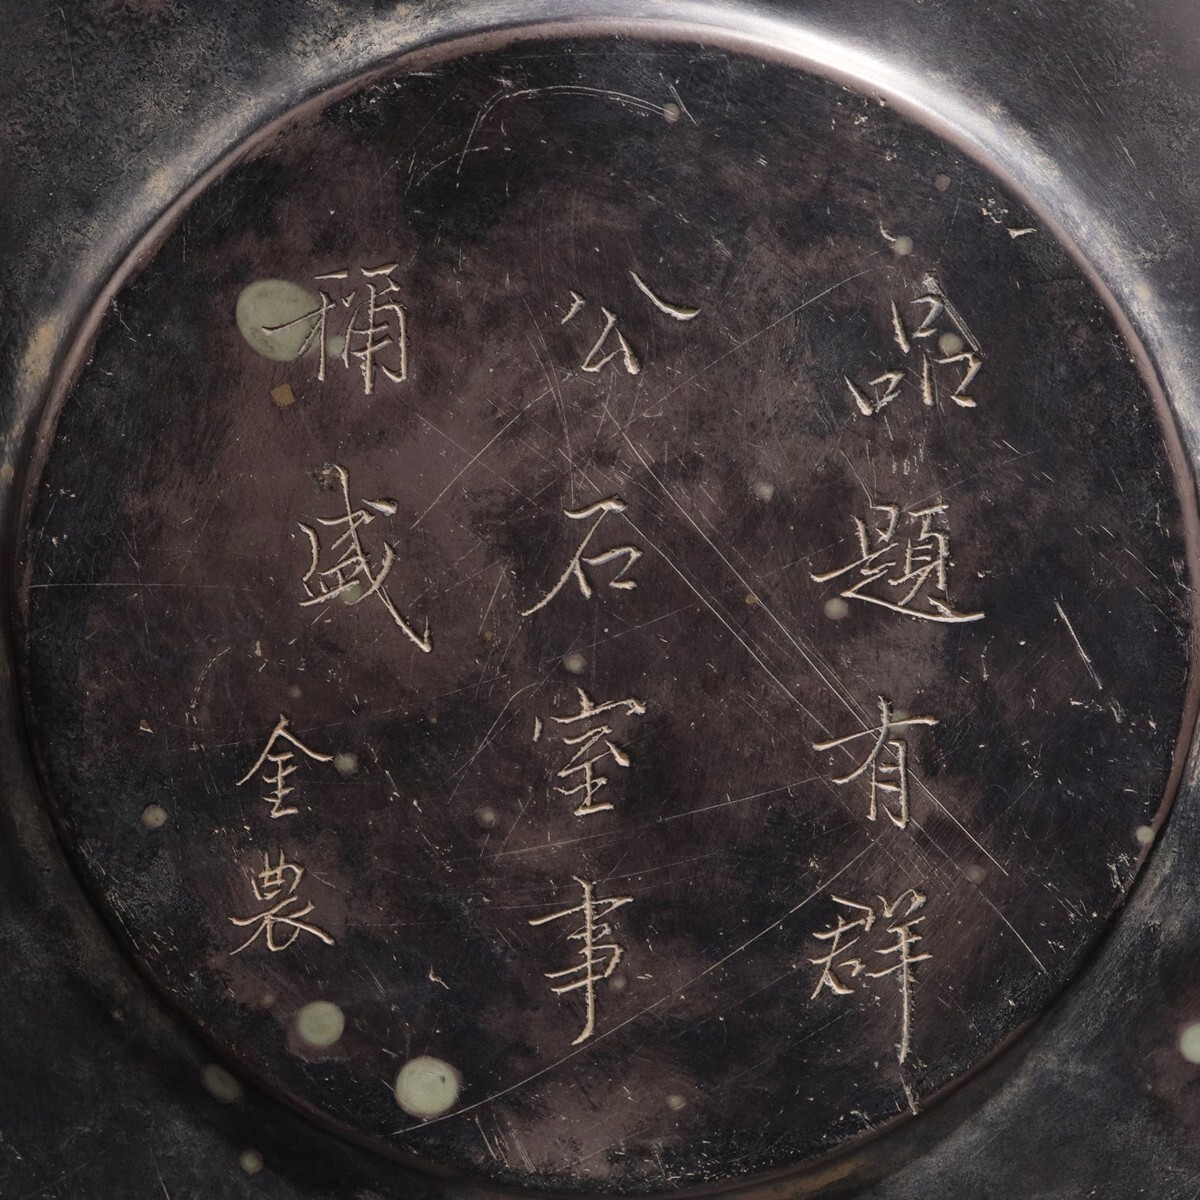 品題有群
公石室事
稱盛
金農